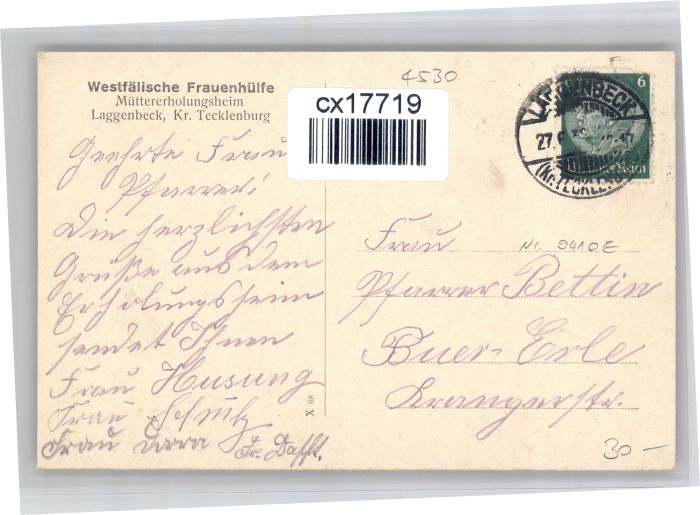 Westfälische Frauenhülfe
Müttererholungsheim
Laggenbeck, Kr. Tecklenburg
4530
cx17719
6
LAGGENBECK
27.
(Kr. TECKLENB
Geehrte Frau
Pfarrer!
Die herzlichsten
Grüße aus dem
Erholungsheim
sendet Ihnen
Frau Husung
Frau Schütz
Frau
Frau
Nr. 9410E
Pfarrer Bettin
Buer-Erle
Krangerstr.
X 08
30 —